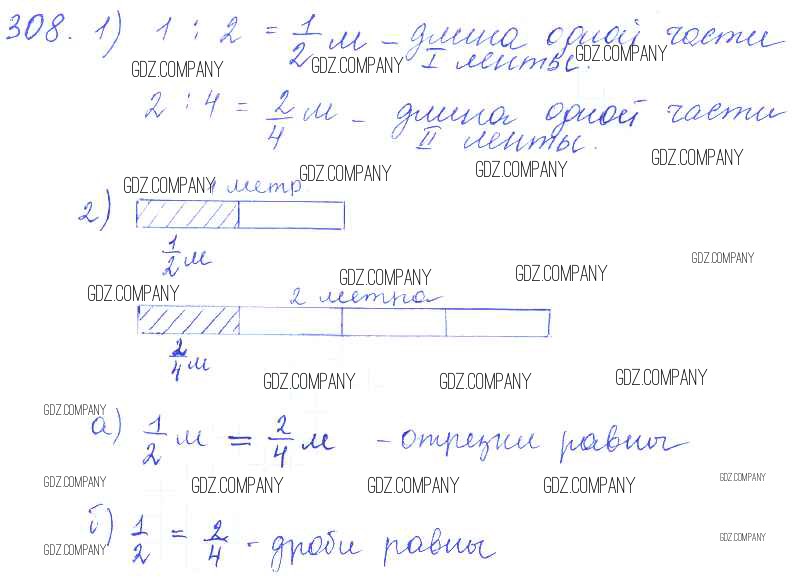 308. 1) 1 : 2 = 1/2 м – длина одной части
GDZ.COMPANY GDZ.COMPANY I ленты. GDZ.COMPANY
2 : 4 = 2/4 м – длина одной части
II ленты.
GDZ.COMPANY GDZ.COMPANY GDZ.COMPANY
GDZ.COMPANY 1 метр
2)
1/2 м
GDZ.COMPANY
GDZ.COMPANY GDZ.COMPANY GDZ.COMPANY
2 метра
2/4 м
GDZ.COMPANY GDZ.COMPANY GDZ.COMPANY
GDZ.COMPANY
а) 1/2 м = 2/4 м – отрезки равны
GDZ.COMPANY GDZ.COMPANY GDZ.COMPANY GDZ.COMPANY GDZ.COMPANY
б) 1/2 = 2/4 – дроби равны
GDZ.COMPANY GDZ.COMPANY